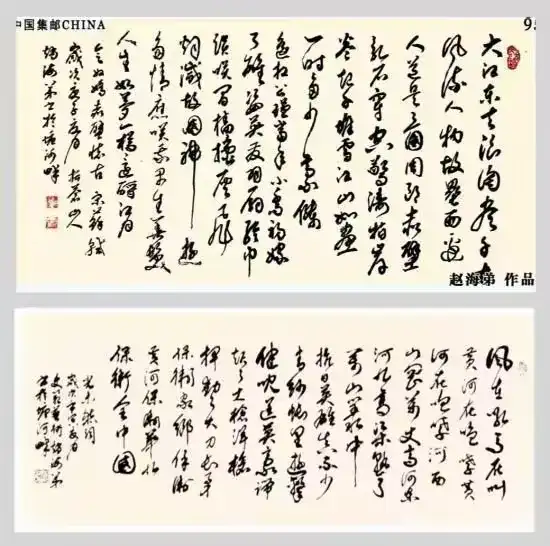 中国集邮CHINA
95
大江东去浪淘尽千古
风流人物故垒西边
人道是三国周郎赤壁
乱石穿空惊涛拍岸
卷起千堆雪江山如画
一时多少豪杰
遥想公瑾当年小乔初嫁
了雄姿英发羽扇纶巾
谈笑间樯橹灰飞
烟灭故国神游
多情应笑我早生华发
人生如梦一樽还酹江月
念奴娇赤壁怀古 宋苏轼
岁次庚子 山人
海弟书于塘河畔
赵海弟 作品
风在吼马在叫
黄河在咆哮黄
河在咆哮河西
山岗万丈高河东
河北高粱熟了
万山丛中
抗日英雄真不少
青纱帐里游击
健儿逞英豪端
起了土枪洋枪
挥动着大刀长矛
保卫家乡保卫
黄河保卫华北
保卫全中国
光未然词
海弟
书于塘河畔